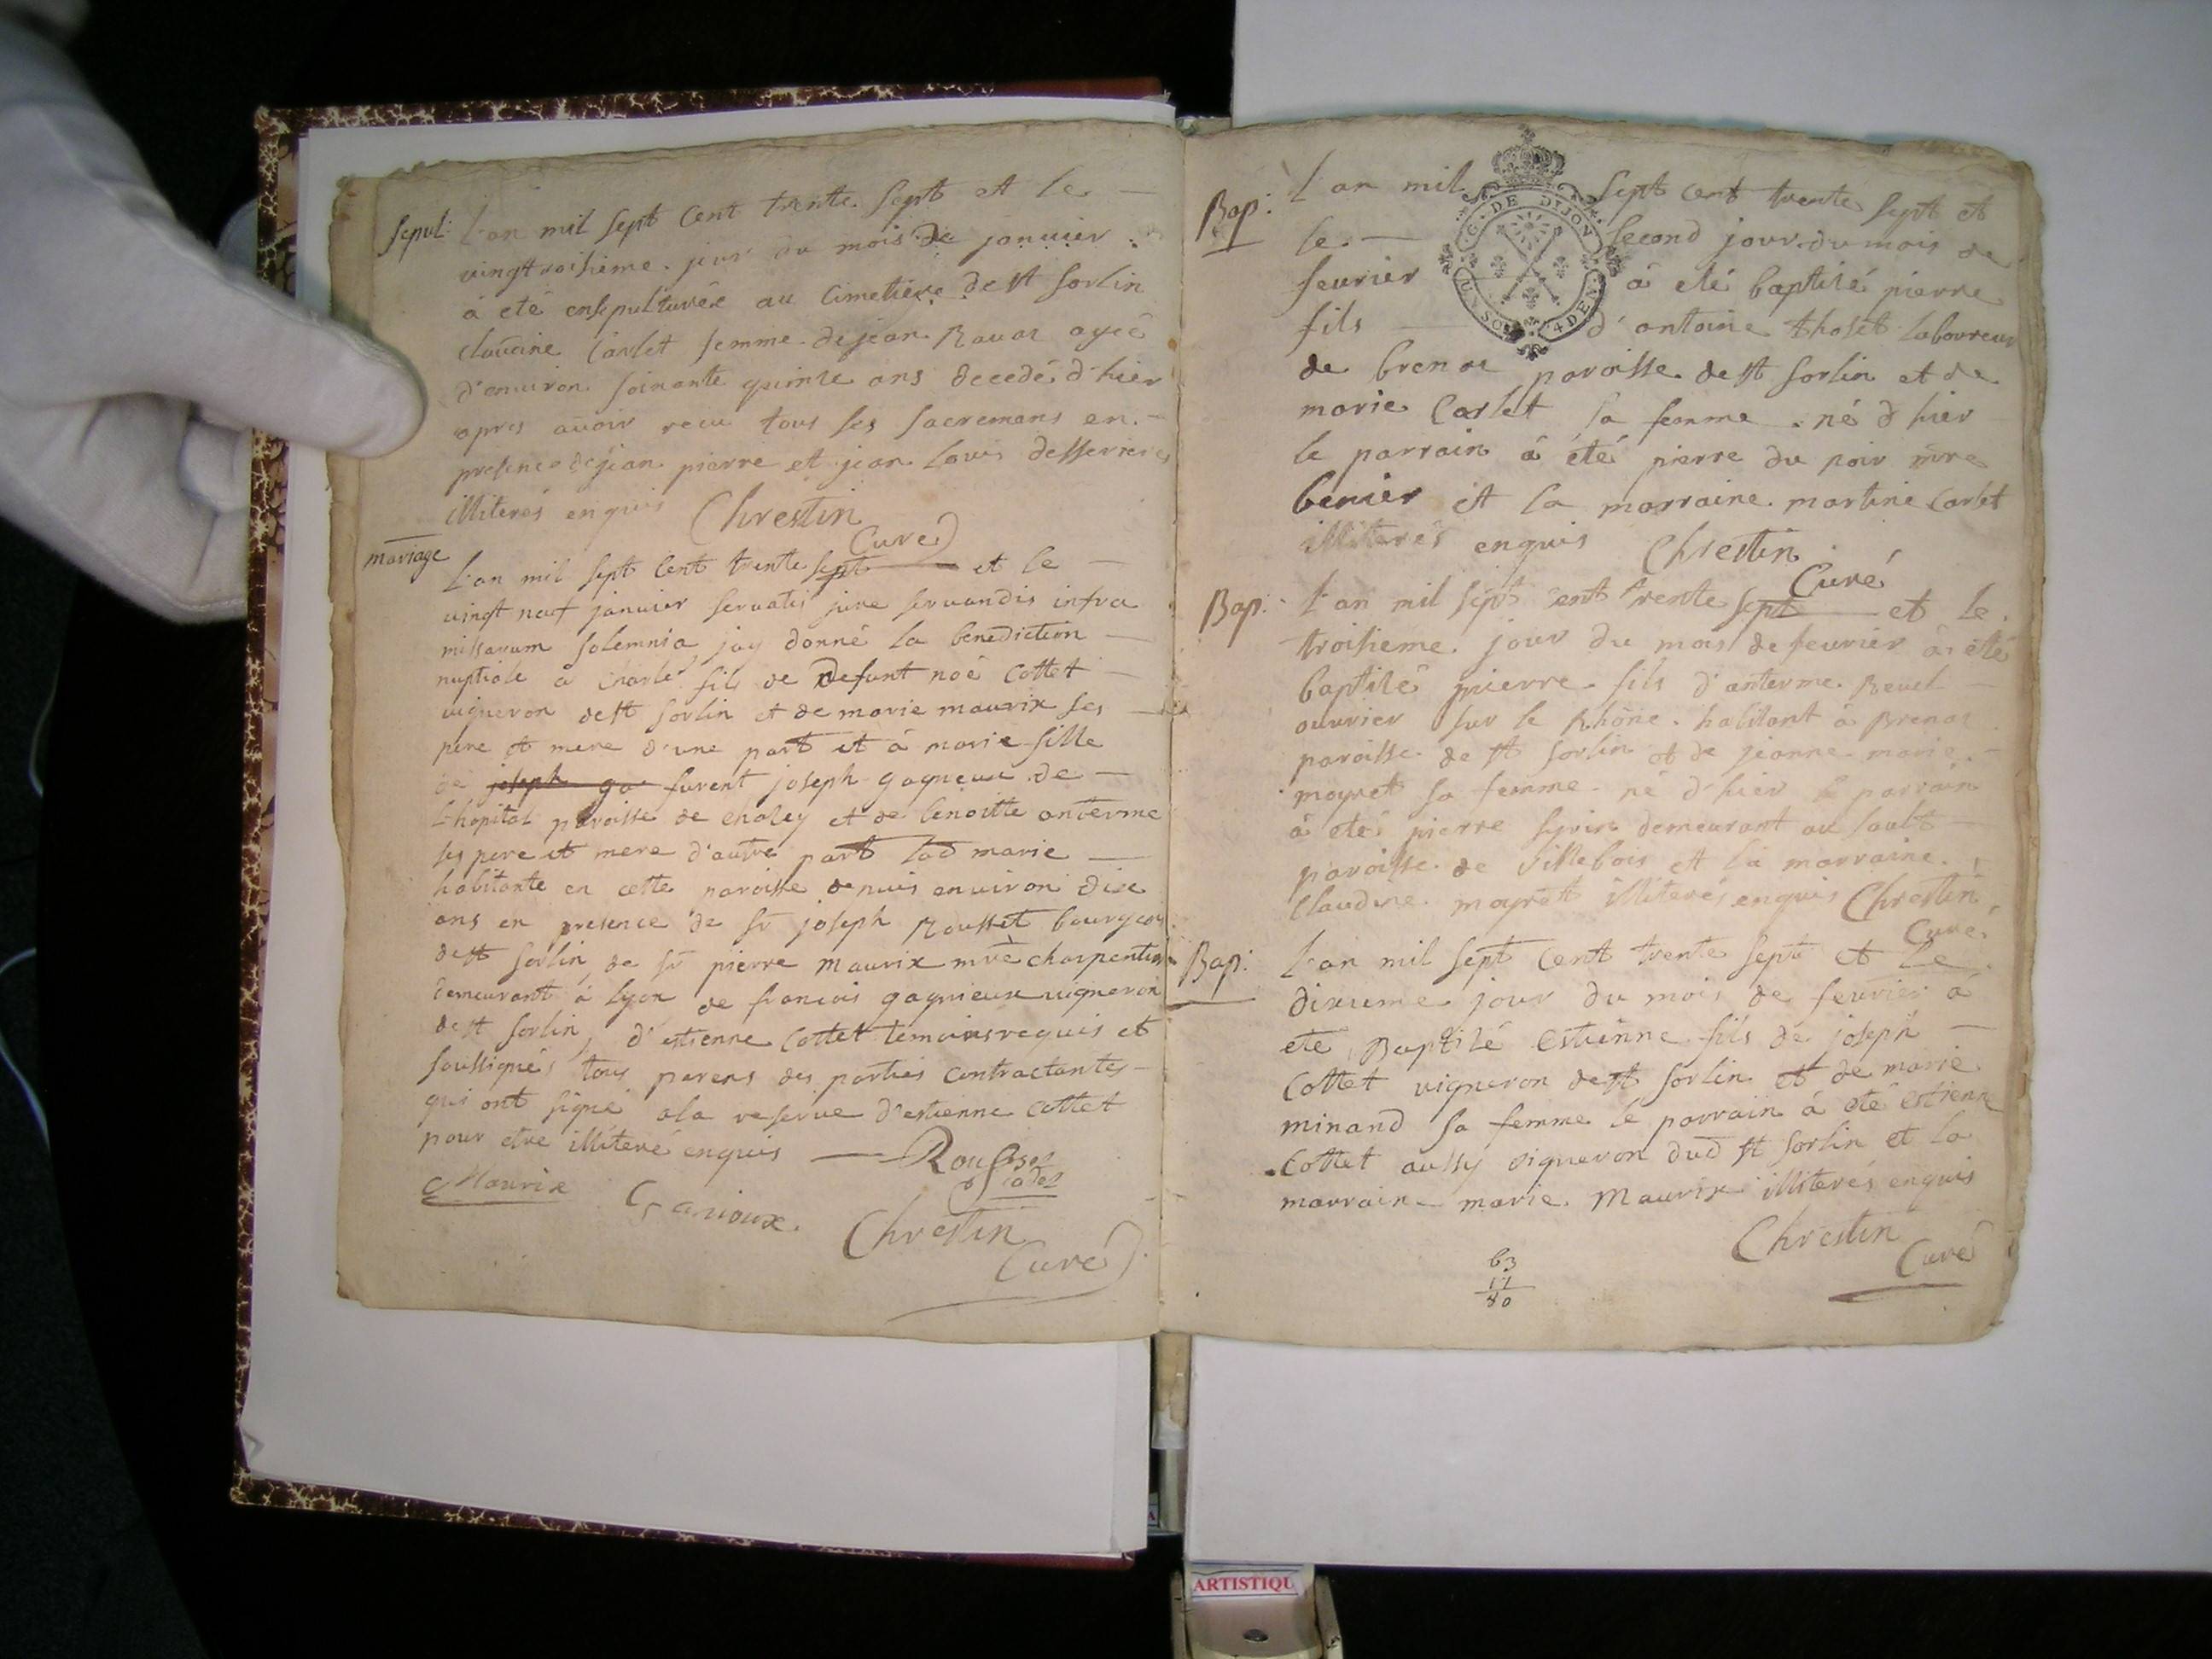 sepul: L'an mil sept cent trente sept et le
vingtroisieme jour du mois de januier
à eté ensepulturée au cimetiere de st sorlin
claudine Carlet femme de jean Rauas agée
d'enuiron soixante quinze ans decedé d'hier
apres auoir recu tous ses sacremens en
presence de jean pierre et jean louis desserrieres
illiterés enquis Chrestin
Curé
mariage L'an mil sept cent trente sept et le
uingt neuf januier seruatis jure seruandis infra
missarum solemnia jay donné la benediction
nuptiale a charle fils de defunt noé cottet
uigneron de st sorlin et de marie maurix ses
pere et mere d'une part et à marie fille
de joseph ga furent joseph gagneux de
l'hopital paroisse de choley et de benoitte anterme
ses pere et mere d'autre part lad marie
habitante en cette paroisse depuis enuiron dix
ans en presence de sr joseph Rousset bourgeois
de st sorlin, de sr pierre maurix mtre charpentier
demeurant à lyon de francois gagnieux uigneron
de st sorlin, d'estienne Cottet temoins requis et
soussignés tous parens des parties contractantes
qui ont signé a la reserue d'estienne cottet
pour etre illiteré enquis Rousset
Maurix Ganioux.
Chrestin
Curé
Bap: L'an mil sept cent trente sept et
le second jour du mois de
feurier à eté baptisé pierre
fils d'antoine thoset laboureur
de brenas paroisse de st sorlin et de
marie Carlet sa femme né d'hier
le parrain à été pierre du poir mtre
benier et la marraine martine Carlet
illiterés enquis Chrestin
Curé
G. DE DIJON
4 DEN.
Bap: L'an mil sept cent trente sept et le
troisieme jour du mois de feurier à eté
baptisé pierre fils d'anterme Reuel
ouurier sur le Rhône habitant à Brenas
paroisse de st sorlin et de jeanne marie
mayret sa femme né d'hier le parrain
à eté pierre demeurant au sault
paroisse de Villebois et la marraine
claudine mayrett illiterés enquis Chrestin
Curé
Bap: L'an mil sept cent trente sept et le
dixieme jour du mois de feurier à
eté Baptisé Estienne fils de joseph
Cottet uigneron de st sorlin et de marie
minand sa femme le parrain à eté estienne
Cottet aussy vigneron dud st sorlin et la
marraine marie Maurix illiterés enquis
Chrestin
Curé
63
17
80
ARTISTIQU